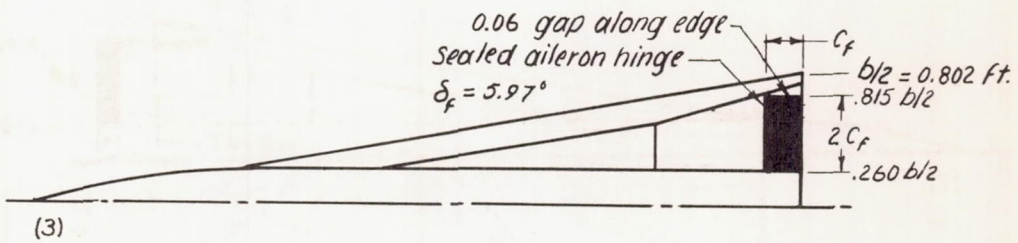 0.06 gap along edge
Sealed aileron hinge
δf = 5.97°
Cf
b/2 = 0.802 ft.
.815 b/2
2 Cf
.260 b/2
(3)